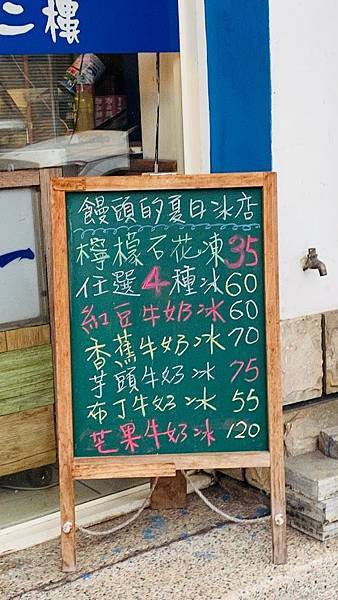 二樓
饅頭的夏日冰店
檸檬石花凍35
任選4種冰60
紅豆牛奶冰60
香蕉牛奶冰70
芋頭牛奶冰75
布丁牛奶冰55
芒果牛奶冰120